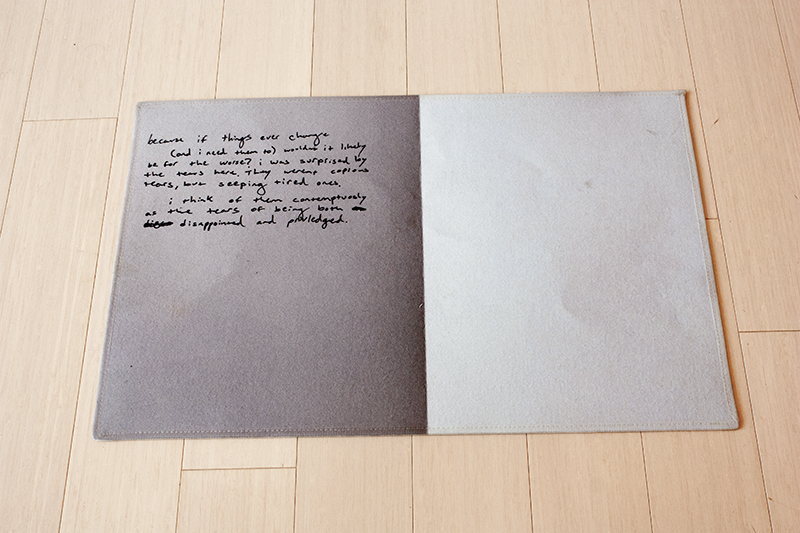 because if things ever change
(and i need them to) wouldn't it likely
be for the worse? i was surprised by
the tears here. They weren't copious
tears, but seeping tired ones.
i think of them contemptuously
as the tears of being both
disappointed and privledged.